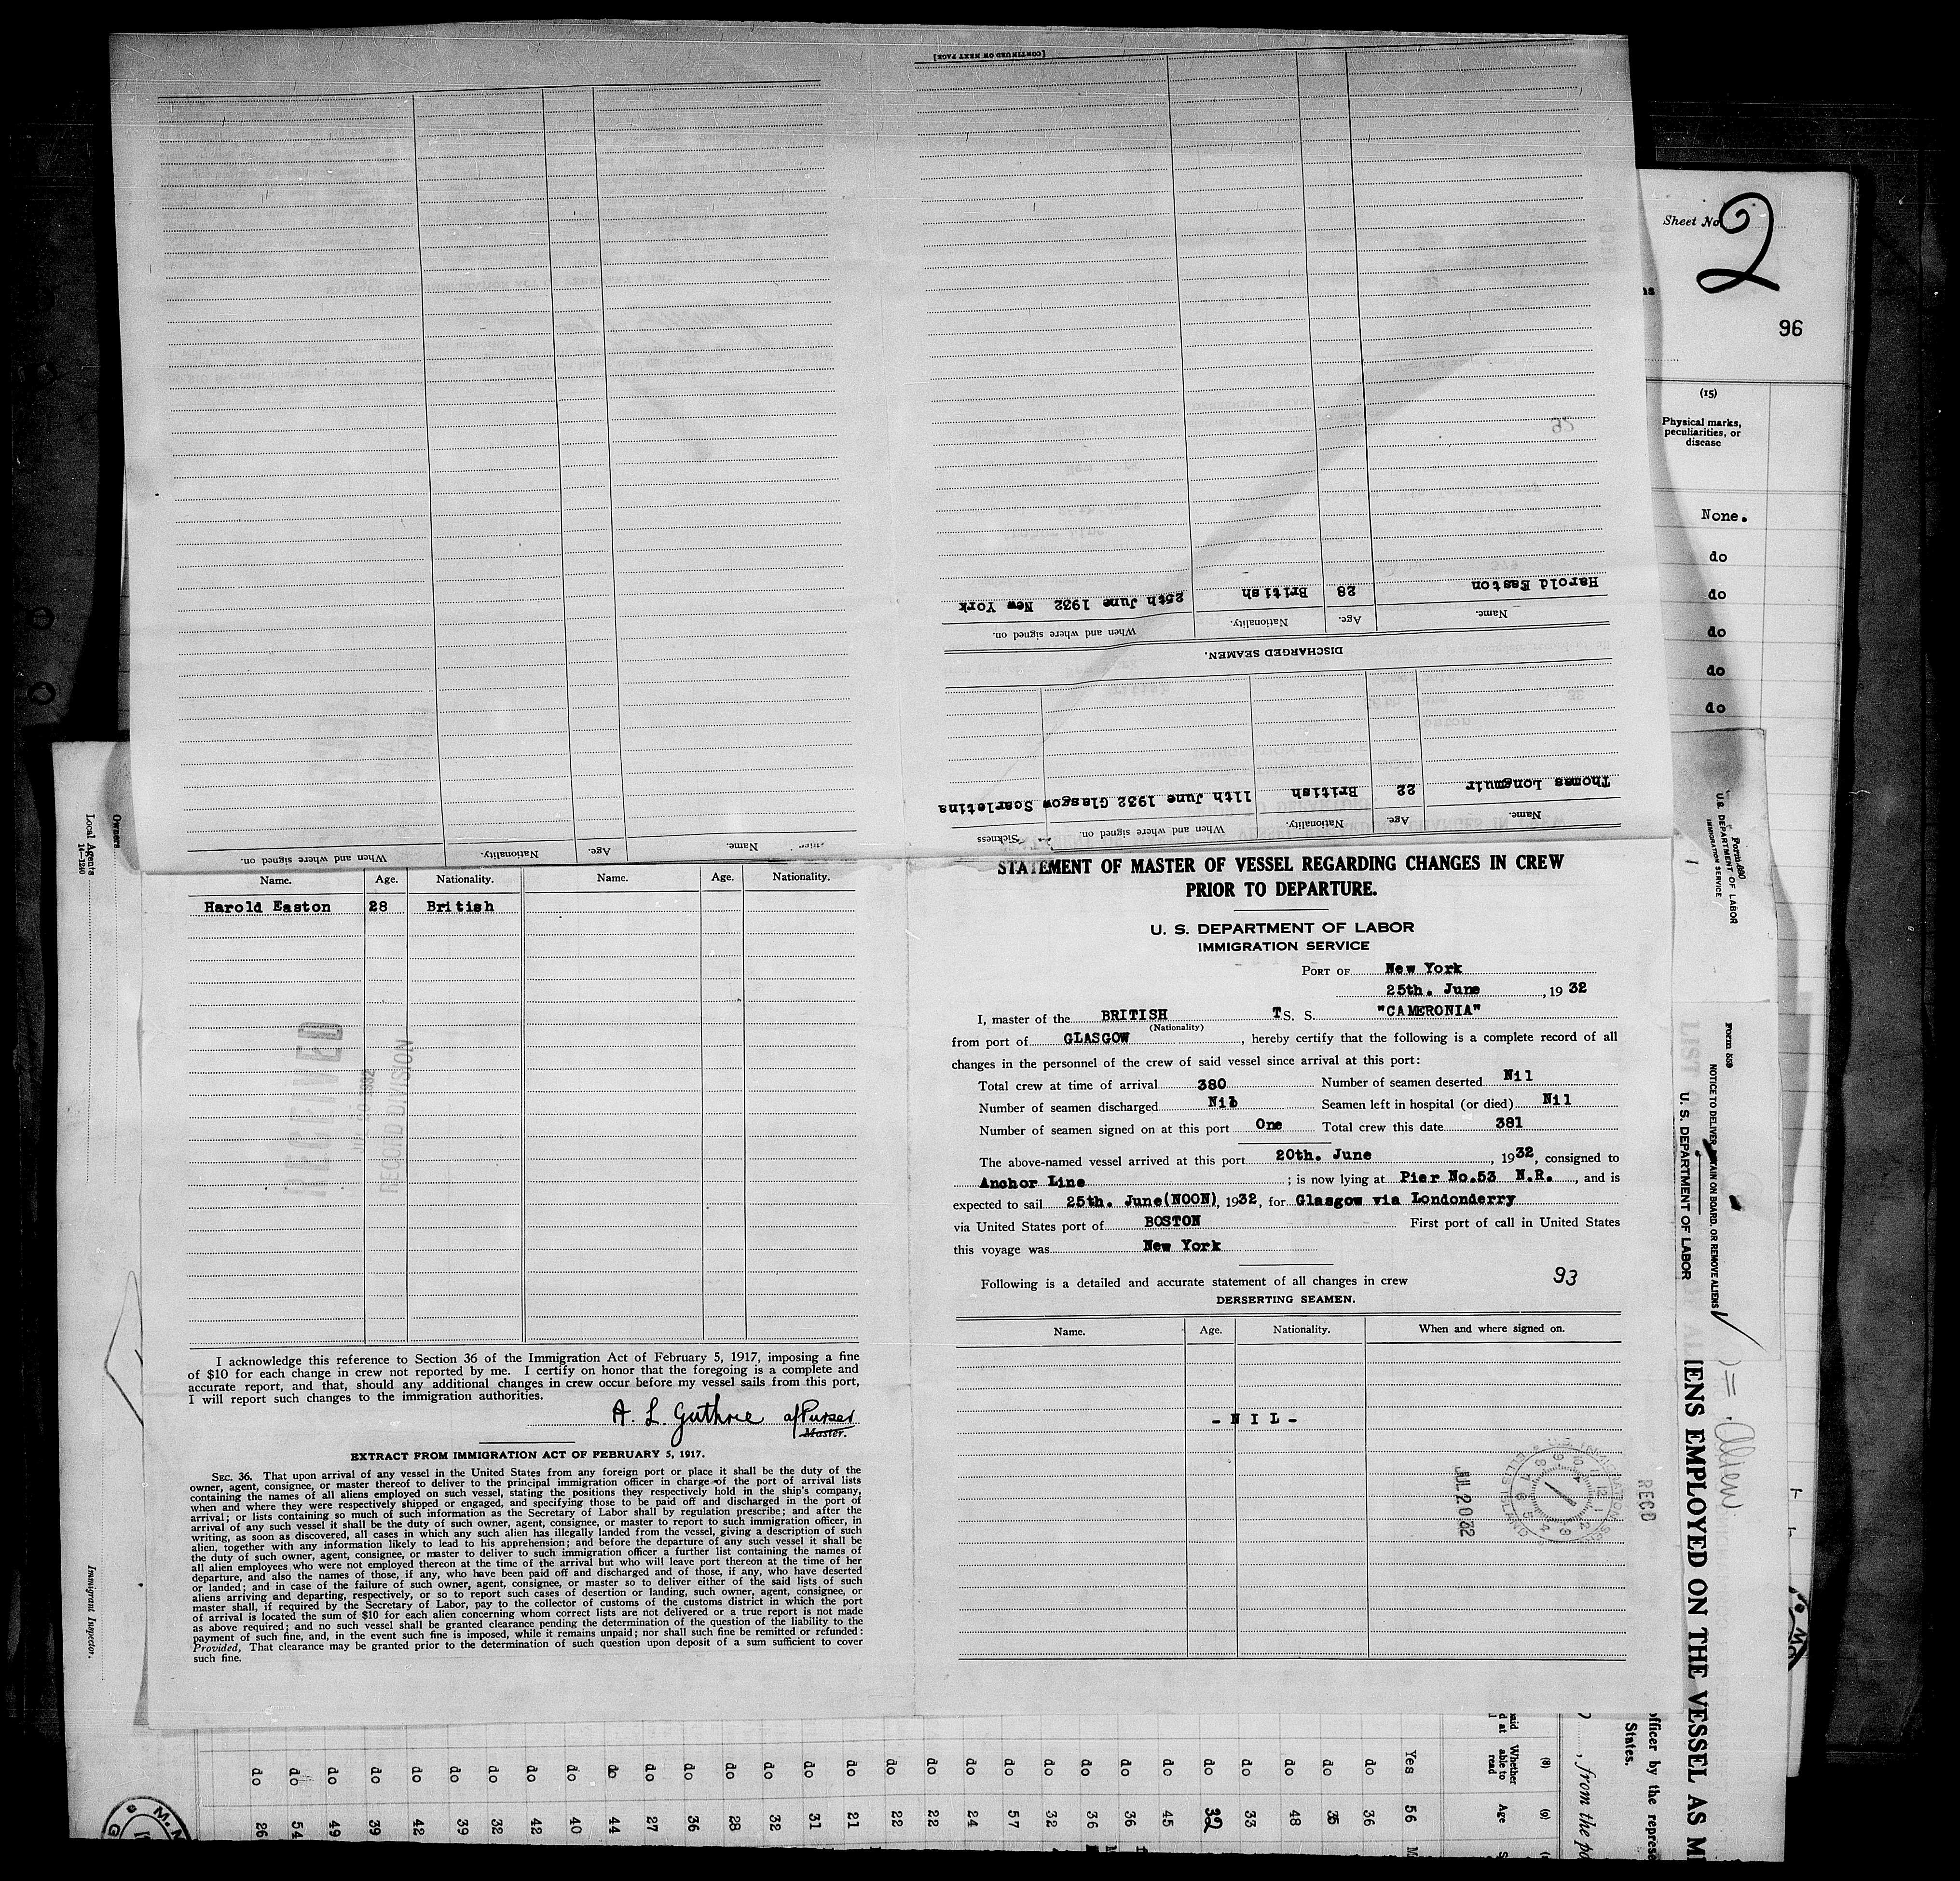 [CONTINUED ON NEXT PAGE]
Harold Easton 28 British 25th June 1932 New York
Name. Age. Nationality. When and where signed on.
DISCHARGED SEAMEN.
Thomas Longmuir 22 British 11th June 1932 Glasgow Scarletina
Name. Age. Nationality. When and where signed on. Sickness
Name. Age. Nationality. When and where signed on.
Name. Age. Nationality. Name. Age. Nationality.
Harold Easton 28 British
RECEIVED
RECORD DIVISION
I acknowledge this reference to Section 36 of the Immigration Act of February 5, 1917, imposing a fine
of $10 for each change in crew not reported by me. I certify on honor that the foregoing is a complete and
accurate report, and that, should any additional changes in crew occur before my vessel sails from this port,
I will report such changes to the immigration authorities.
A. L. Guthrie a/Purser
Master.
EXTRACT FROM IMMIGRATION ACT OF FEBRUARY 5, 1917.
SEC. 36. That upon arrival of any vessel in the United States from any foreign port or place it shall be the duty of the
owner, agent, consignee, or master thereof to deliver to the principal immigration officer in charge of the port of arrival lists
containing the names of all aliens employed on such vessel, stating the positions they respectively hold in the ship's company,
when and where they were respectively shipped or engaged, and specifying those to be paid off and discharged in the port of
arrival; or lists containing so much of such information as the Secretary of Labor shall by regulation prescribe; and after the
arrival of any such vessel it shall be the duty of such owner, agent, consignee, or master to report to such immigration officer, in
writing, as soon as discovered, all cases in which any such alien has illegally landed from the vessel, giving a description of such
alien, together with any information likely to lead to his apprehension; and before the departure of any such vessel it shall be
the duty of such owner, agent, consignee, or master to deliver to such immigration officer a further list containing the names of
all alien employees who were not employed thereon at the time of the arrival but who will leave port thereon at the time of her
departure, and also the names of those, if any, who have been paid off and discharged and of those, if any, who have deserted
or landed; and in case of the failure of such owner, agent, consignee, or master so to deliver either of the said lists of such
aliens arriving and departing, respectively, or so to report such cases of desertion or landing, such owner, agent, consignee, or
master shall, if required by the Secretary of Labor, pay to the collector of customs of the customs district in which the port
of arrival is located the sum of $10 for each alien concerning whom correct lists are not delivered or a true report is not made
as above required; and no such vessel shall be granted clearance pending the determination of the question of the liability to the
payment of such fine, and, in the event such fine is imposed, while it remains unpaid; nor shall such fine be remitted or refunded:
Provided, That clearance may be granted prior to the determination of such question upon deposit of a sum sufficient to cover
such fine.
STATEMENT OF MASTER OF VESSEL REGARDING CHANGES IN CREW
PRIOR TO DEPARTURE.
U. S. DEPARTMENT OF LABOR
IMMIGRATION SERVICE
PORT OF New York
25th. June, 1932
I, master of the BRITISH TS. S. "CAMERONIA"
(Nationality)
from port of GLASGOW, hereby certify that the following is a complete record of all
changes in the personnel of the crew of said vessel since arrival at this port:
Total crew at time of arrival 380 Number of seamen deserted Nil
Number of seamen discharged Nil Seamen left in hospital (or died) Nil
Number of seamen signed on at this port One Total crew this date 381
The above-named vessel arrived at this port 20th. June, 1932, consigned to
Anchor Line; is now lying at Pier No.53 N.R., and is
expected to sail 25th. June(NOON), 1932, for Glasgow via Londonderry
via United States port of BOSTON First port of call in United States
this voyage was New York
Following is a detailed and accurate statement of all changes in crew
93
DERSERTING SEAMEN.
Name. Age. Nationality. When and where signed on.
- N I L -
JUL 20 32
REC'D
Sheet No. 2
96
(15)
Physical marks,
peculiarities, or
disease
None.
do
do
do
do
do
Form 680
U.S. DEPARTMENT OF LABOR
IMMIGRATION SERVICE
Form 539
NOTICE TO DELIVER, DETAIN ON BOARD, OR REMOVE ALIENS
U. S. DEPARTMENT OF LABOR
LIST
IENS EMPLOYED ON THE VESSEL AS ME
fficer by the represe
States.
, from the po
Owners
Local Agents
14-1240
Immigrant Inspector.
(8)
Whether
able to
read
Yes
do do do do do do do do do do do do do do do do do do do do do do do do
(9)
Age
56
36
35
48
33
32
45
36
36
32
57
24
22
22
21
31
32
28
36
27
44
40
42
32
39
42
39
49
54
26